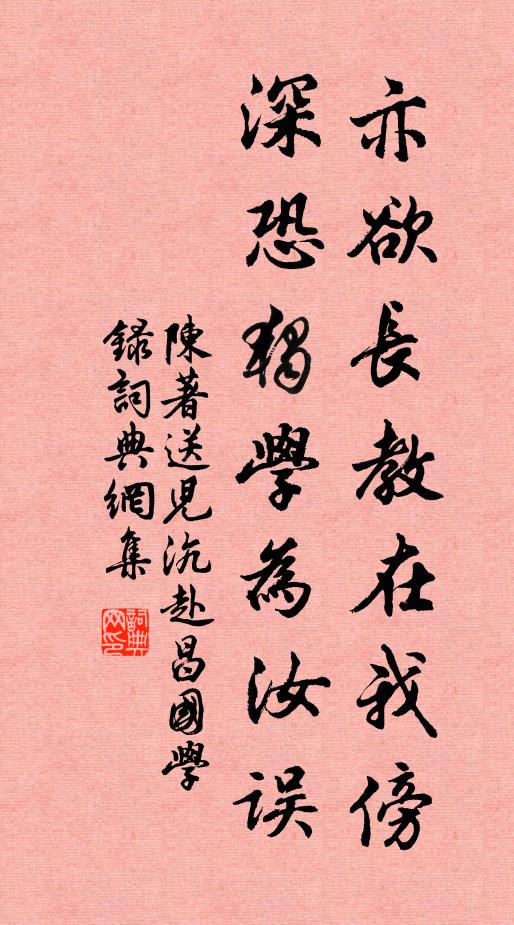 亦欲長教在我傍
深恐獨學為汝誤
陳著送児沆赴昌國學
錄詞典網集
詞典網印